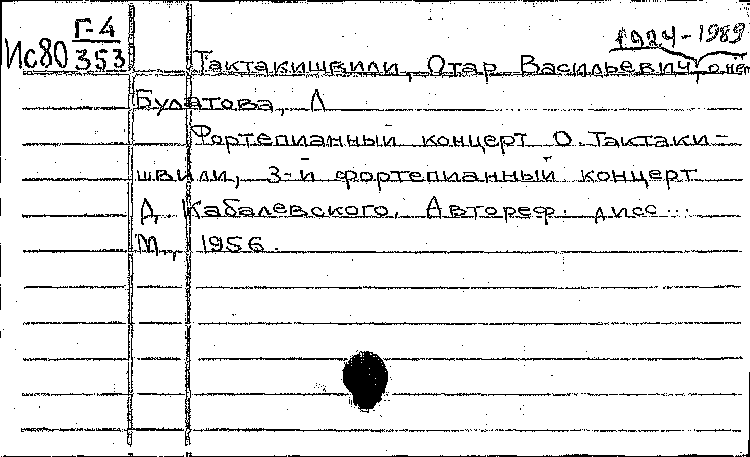 Г-4
Ис80 353
1924-1989
Тактакишвили, Отар Васильевич, о нем
Булатова, Л
Фортепианный концерт О. Тактаки-
швили, 3-й фортепианный концерт
Д. Кабалевского. Автореф. дисс...
М., 1956.